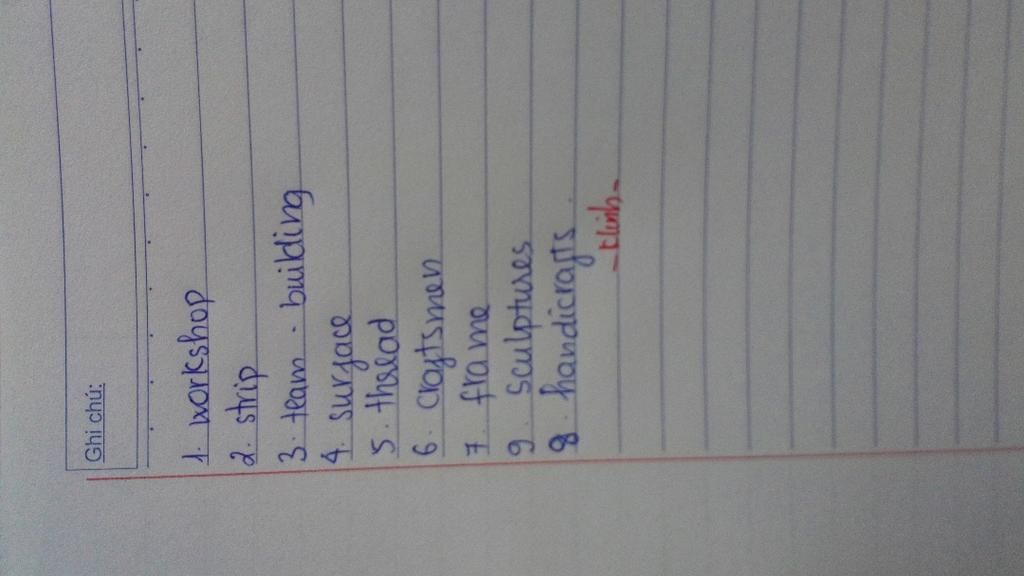 Ghi chú:
1. workshop
2. strip
3. team - building
4. surface
5. thread
6. craftsmen
7. frame
9. sculptures
8. handicrafts.